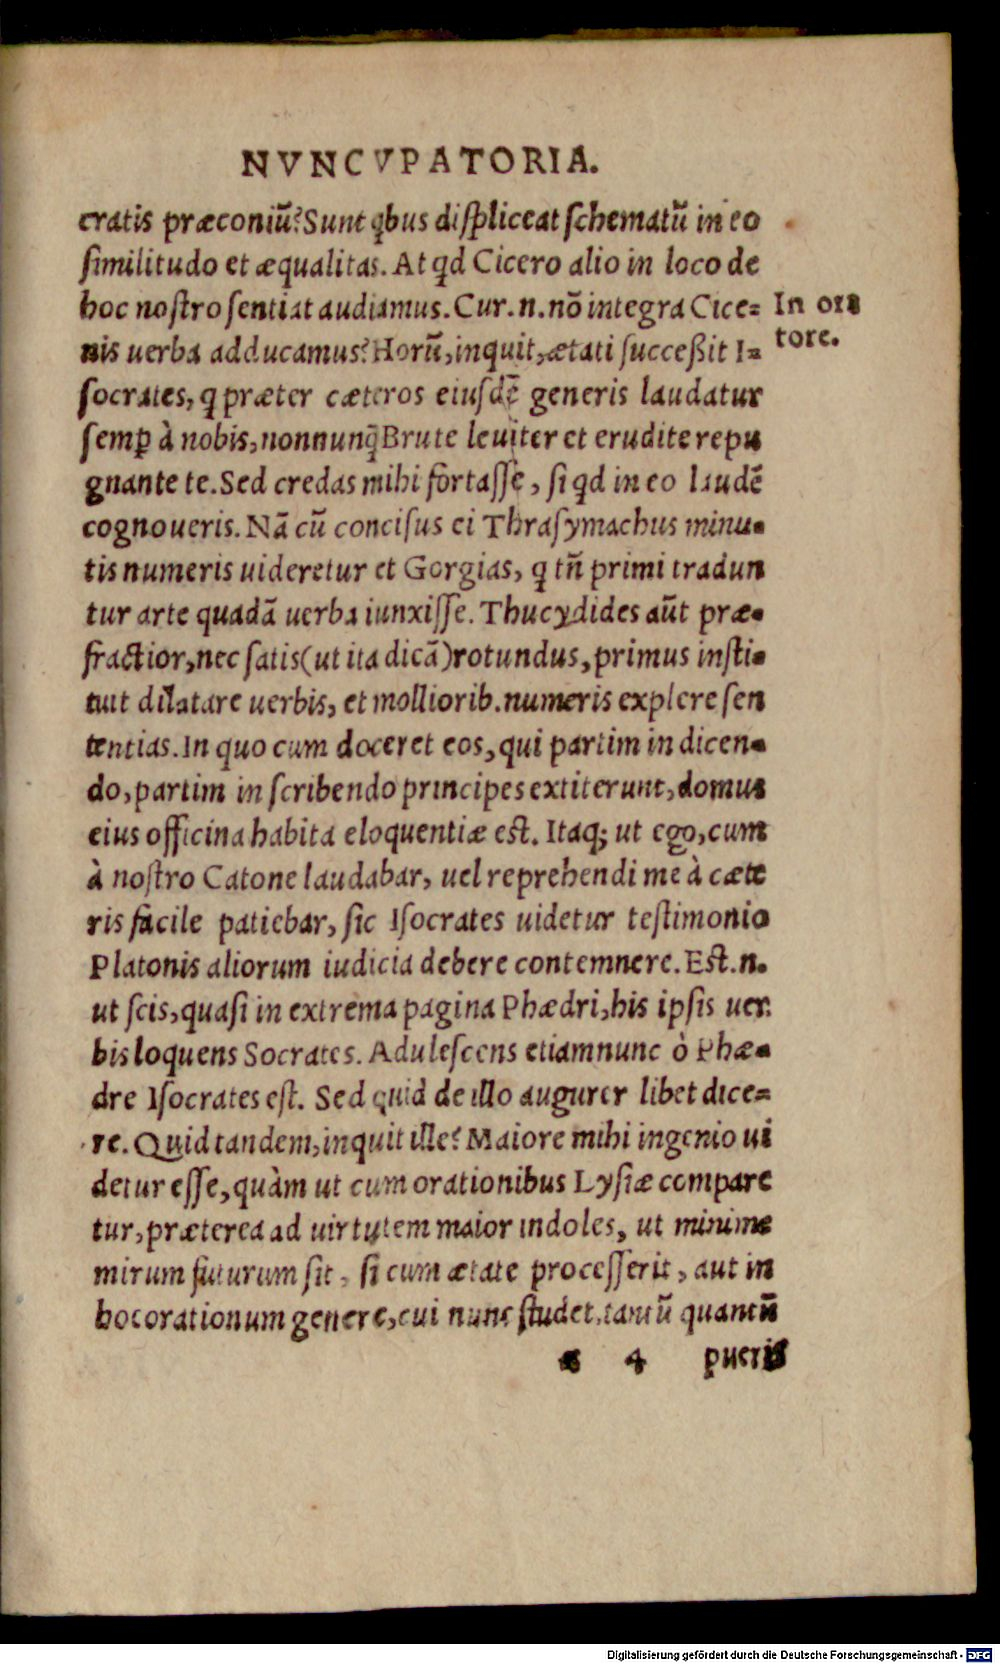 NVNCVPATORIA.
cratis præconiũ? Sunt qbus displiceat schematũ in eo
similitudo et æqualitas. At qd Cicero alio in loco de
hoc nostro sentiat audiamus. Cur. n. nõ integra Cice=
nis uerba adducamus? Horũ, inquit, ætati succeßit I=
socrates, q præter cæteros eiusdẽ generis laudatur
semp à nobis, nonnunq̃ Brute leuiter et erudite repu
gnante te. Sed credas mihi fortasse, si qd in eo laudẽ
cognoueris. Nã cũ concisus ei Thrasymachus minu-
tis numeris uideretur et Gorgias, q tñ primi tradun
tur arte quadã uerba iunxisse. Thucydides aũt præ-
fractior, nec satis (ut ita dicã) rotundus, primus insti-
tuit dilatare uerbis, et molliorib. numeris explere sen
tentias. In quo cum doceret eos, qui partim in dicen-
do, partim in scribendo principes extiterunt, domus
eius officina habita eloquentiæ est. Itaq; ut ego, cum
à nostro Catone laudabar, uel reprehendi me à cæte
ris facile patiebar, sic Isocrates uidetur testimonio
Platonis aliorum iudicia debere contemnere. Est. n.
ut scis, quasi in extrema pagina Phædri, his ipsis uer.
bis loquens Socrates. Adulescens etiamnunc ò Phæ-
dre Isocrates est. Sed quid de illo augurer libet dice=
re. Quid tandem, inquit ille? Maiore mihi ingenio ui
detur esse, quàm ut cum orationibus Lysiæ compare
tur, præterea ad uirtutem maior indoles, ut minime
mirum futurum sit, si cum ætate processerit, aut in
hoc orationum genere, cui nunc studet, tantũ quantũ
4 pueris
In ora
tore.
Digitalisierung gefördert durch die Deutsche Forschungsgemeinschaft - DFG